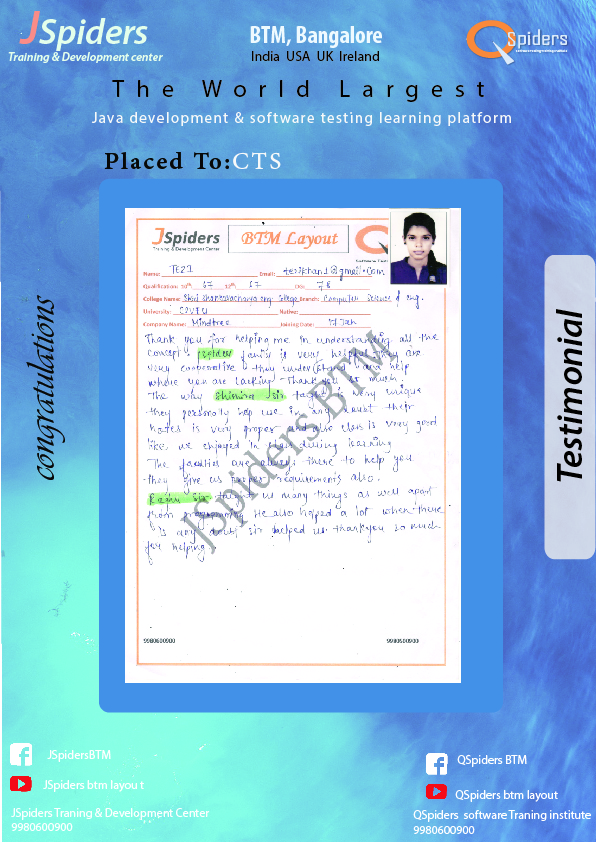 JSpiders
Training & Development center
BTM, Bangalore
India USA UK Ireland
QSpiders
The World Largest
Java development & software testing learning platform
Placed To:CTS
congratulations
Testimonial
JSpiders
Training & Development Center
BTM Layout
Name:
Email: tezikhan1@gmail.com
Qualification: 10th: 67 12th: 67 78
College Name: Shri Shankaracharya eng. College Branch: Computer Science & eng.
University: Native:
Company Name: Mindtree Joining Date: Jan
Thank you for helping me in understanding all the
concept is very helpful they are
very cooperative they understand and help
where you are lacking. Thank you so much.
The way sir taught is very unique
they personally help we in any their
notes is very proper and also class is very good
like we enjoyed in class during learning
The faculties are always there to help you
they give us proper requirements also.
Raghu sir taught us many things as well apart
from programming He also helped a lot when there
is any doubt sir helped us thankyou so much
for helping.
JSpiders BTM
9980600900
9980600900
JSpidersBTM
JSpiders btm layou t
JSpiders Traning & Development Center
9980600900
QSpiders BTM
QSpiders btm layout
QSpiders software Traning institute
9980600900